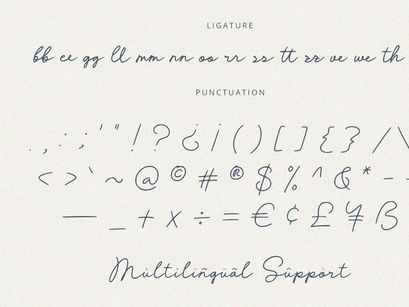 LIGATURE
bb ee gg ll mm nn oo rr ss tt zz ve we th
PUNCTUATION
. , : ; ' " ! ? ¿ ¡ ( ) [ ] { } / \
< > ` ~ @ © # ® $ % ^ & * - –
— _ + x ÷ = € ¢ £ ¥ ß
Mültilïñgüãl Sûppört